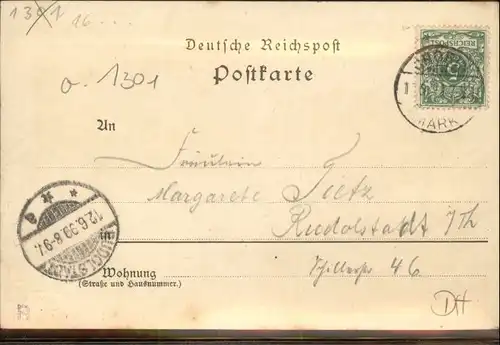 1301 16 ...
Deutsche Reichspost
Postkarte
o. 1301
REICHSPOST
MARK
An
Fräulein
Margarete Tietz
Rudolstadt i/Th
Schillerstr 46
RUDOLSTADT
12.6.99.8-9V.
a
Wohnung
(Straße und Hausnummer.)
DH